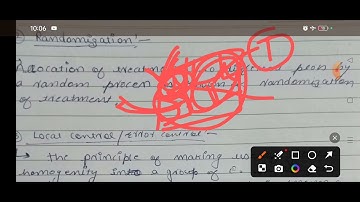 10:06
Randomization:-
Allocation of treatment to different plots by
a random process is known as randomization
of treatment
Local control/Error control -
→ the principle of making use
homogenity into a group of
T